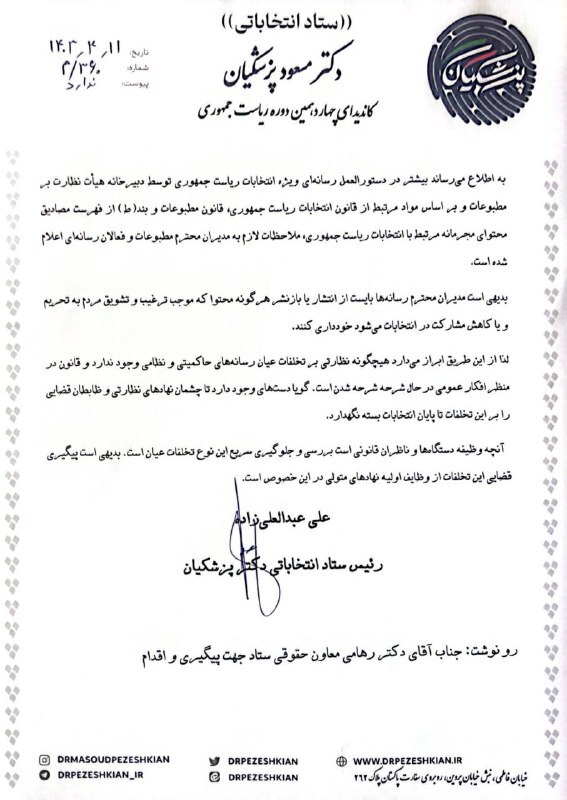 ((ستاد انتخاباتی))
دکتر مسعود پزشکیان
کاندیدای چهاردهمین دوره ریاست جمهوری
پزشکیان
تاریخ: ۱۴۰۳٫۴٫۱۱
شماره: ۳۶۰/م
پیوست: ندارد
به اطلاع می‌رساند بیشتر در دستورالعمل رسانه‌ای ویژه انتخابات ریاست جمهوری توسط دبیرخانه هیأت نظارت بر
مطبوعات و بر اساس مواد مرتبط از قانون انتخابات ریاست جمهوری، قانون مطبوعات و بند(ط) از فهرست مصادیق
محتوای مجرمانه مرتبط با انتخابات ریاست جمهوری، ملاحظات لازم به مدیران محترم مطبوعات و فعالان رسانه‌ای اعلام
شده است.
بدیهی است مدیران محترم رسانه‌ها بایست از انتشار یا بازنشر هرگونه محتوا که موجب ترغیب و تشویق مردم به تحریم
و یا کاهش مشارکت در انتخابات می‌شود خودداری کنند.
لذا از این طریق ابراز می‌دارد هیچگونه نظارتی بر تخلفات عیان رسانه‌های حاکمیتی و نظامی وجود ندارد و قانون در
منظر افکار عمومی در حال شرحه شرحه شدن است. گویا دست‌های وجود دارد تا چشمان نهادهای نظارتی و ظابطان قضایی
را بر این تخلفات تا پایان انتخابات بسته نگهدارد.
آنچه وظیفه دستگاه‌ها و ناظران قانونی است بررسی و جلوگیری سریع این نوع تخلفات عیان است. بدیهی است پیگیری
قضایی این تخلفات از وظایف اولیه نهادهای متولی در این خصوص است.
علی عبدالعلی‌زاده
رئیس ستاد انتخاباتی دکتر پزشکیان
رو نوشت: جناب آقای دکتر رهامی معاون حقوقی ستاد جهت پیگیری و اقدام
DRMASOUDPEZESHKIAN DRPEZESHKIAN WWW.DRPEZESHKIAN.IR
DRPEZESHKIAN_IR DRPEZESHKIAN خیابان فاطمی، نبش خیابان پروین، روبروی سفارت پاکستان پلاک ۲۶۲